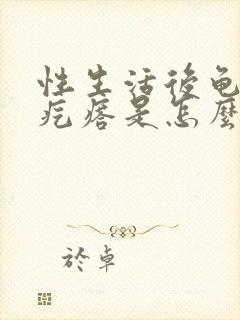 性生活後龟
疙瘩是怎麼
於卓